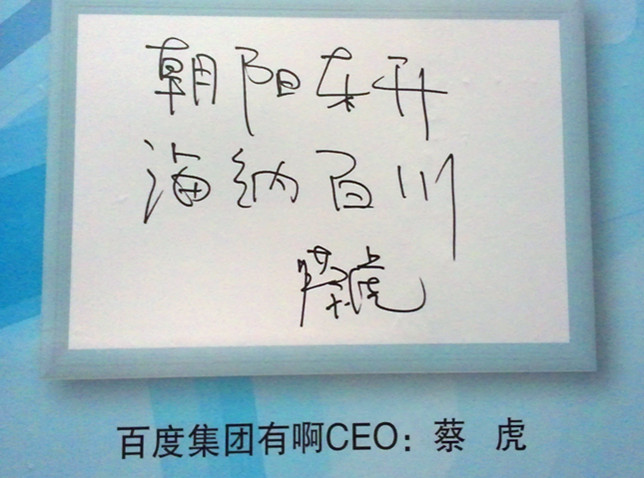 朝阳东升
海纳百川
蔡虎
百度集团有啊CEO：蔡 虎